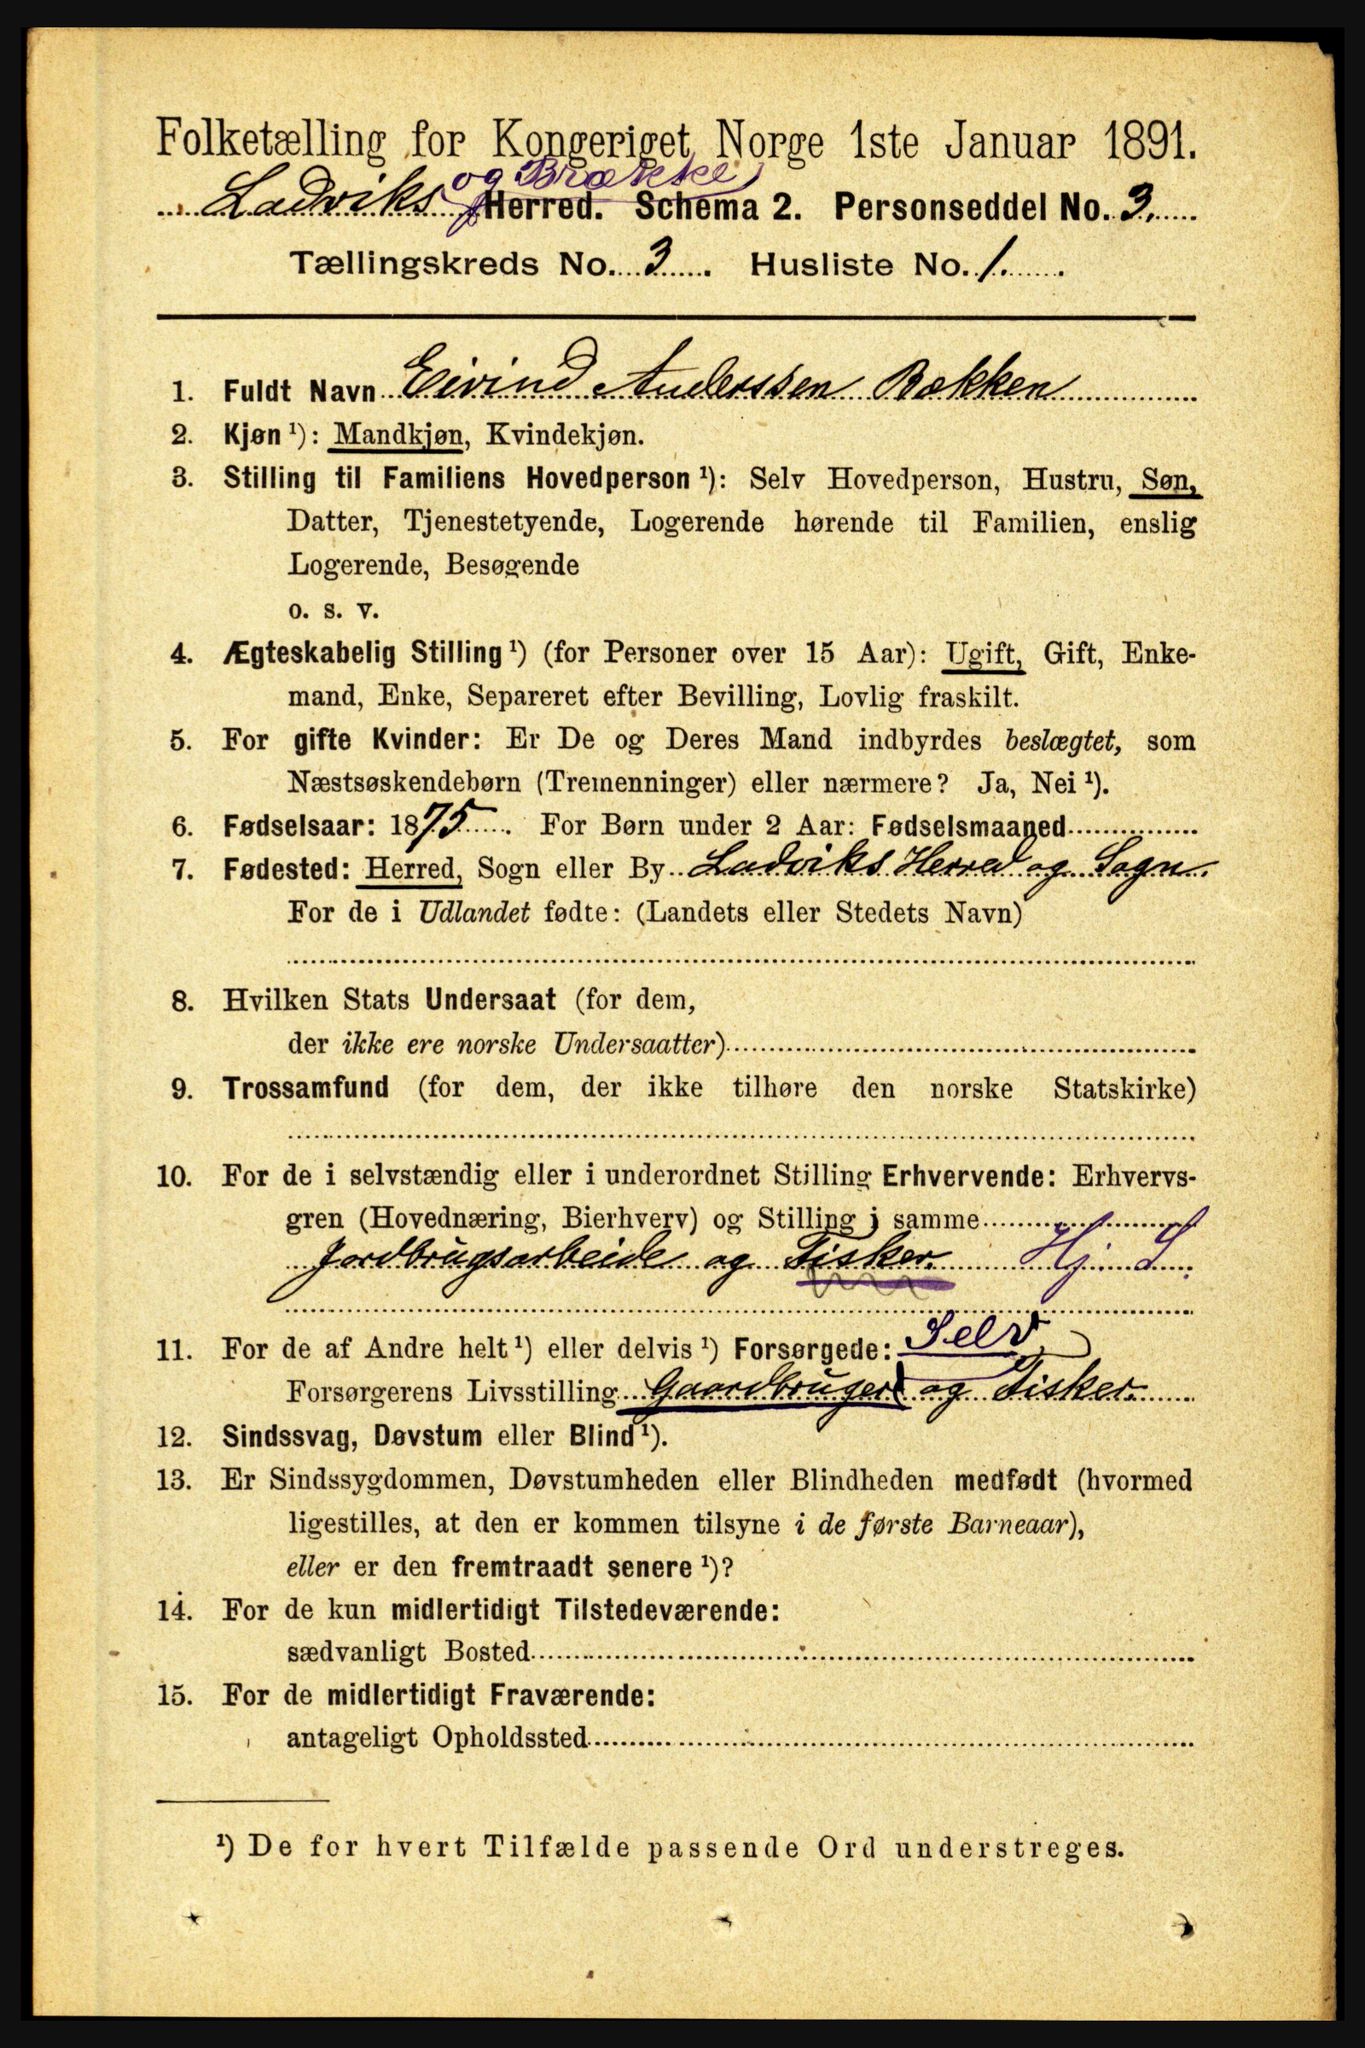 Folketælling for Kongeriget Norge 1ste Januar 1891.
og Brække
Ladviks Herred. Schema 2. Personseddel No. 3.
Tællingskreds No. 3. Husliste No. 1.
1. Fuldt Navn Eivind Anderssen Bækken
2. Kjøn ¹): Mandkjøn, Kvindekjøn.
3. Stilling til Familiens Hovedperson ¹): Selv Hovedperson, Hustru, Søn,
Datter, Tjenestetyende, Logerende hørende til Familien, enslig
Logerende, Besøgende
o. s. v.
4. Ægteskabelig Stilling ¹) (for Personer over 15 Aar): Ugift, Gift, Enke-
mand, Enke, Separeret efter Bevilling, Lovlig fraskilt.
5. For gifte Kvinder: Er De og Deres Mand indbyrdes beslægtet, som
Næstsøskendebørn (Tremenninger) eller nærmere? Ja, Nei ¹).
6. Fødselsaar: 1875. For Børn under 2 Aar: Fødselsmaaned
7. Fødested: Herred, Sogn eller By Ladviks Herred og Sogn.
For de i Udlandet fødte: (Landets eller Stedets Navn)
8. Hvilken Stats Undersaat (for dem,
der ikke ere norske Undersaatter)
9. Trossamfund (for dem, der ikke tilhøre den norske Statskirke)
10. For de i selvstændig eller i underordnet Stilling Erhvervende: Erhvervs-
gren (Hovednæring, Bierhverv) og Stilling i samme
Jordbrugsarbeide og Fisker. Hj. S.
11. For de af Andre helt ¹) eller delvis ¹) Forsørgede: Selv
Forsørgerens Livsstilling Gaardbruger og Fisker.
12. Sindssvag, Døvstum eller Blind ¹).
13. Er Sindssygdommen, Døvstumheden eller Blindheden medfødt (hvormed
ligestilles, at den er kommen tilsyne i de første Barneaar),
eller er den fremtraadt senere ¹)?
14. For de kun midlertidigt Tilstedeværende:
sædvanligt Bosted
15. For de midlertidigt Fraværende:
antageligt Opholdssted
¹) De for hvert Tilfælde passende Ord understreges.